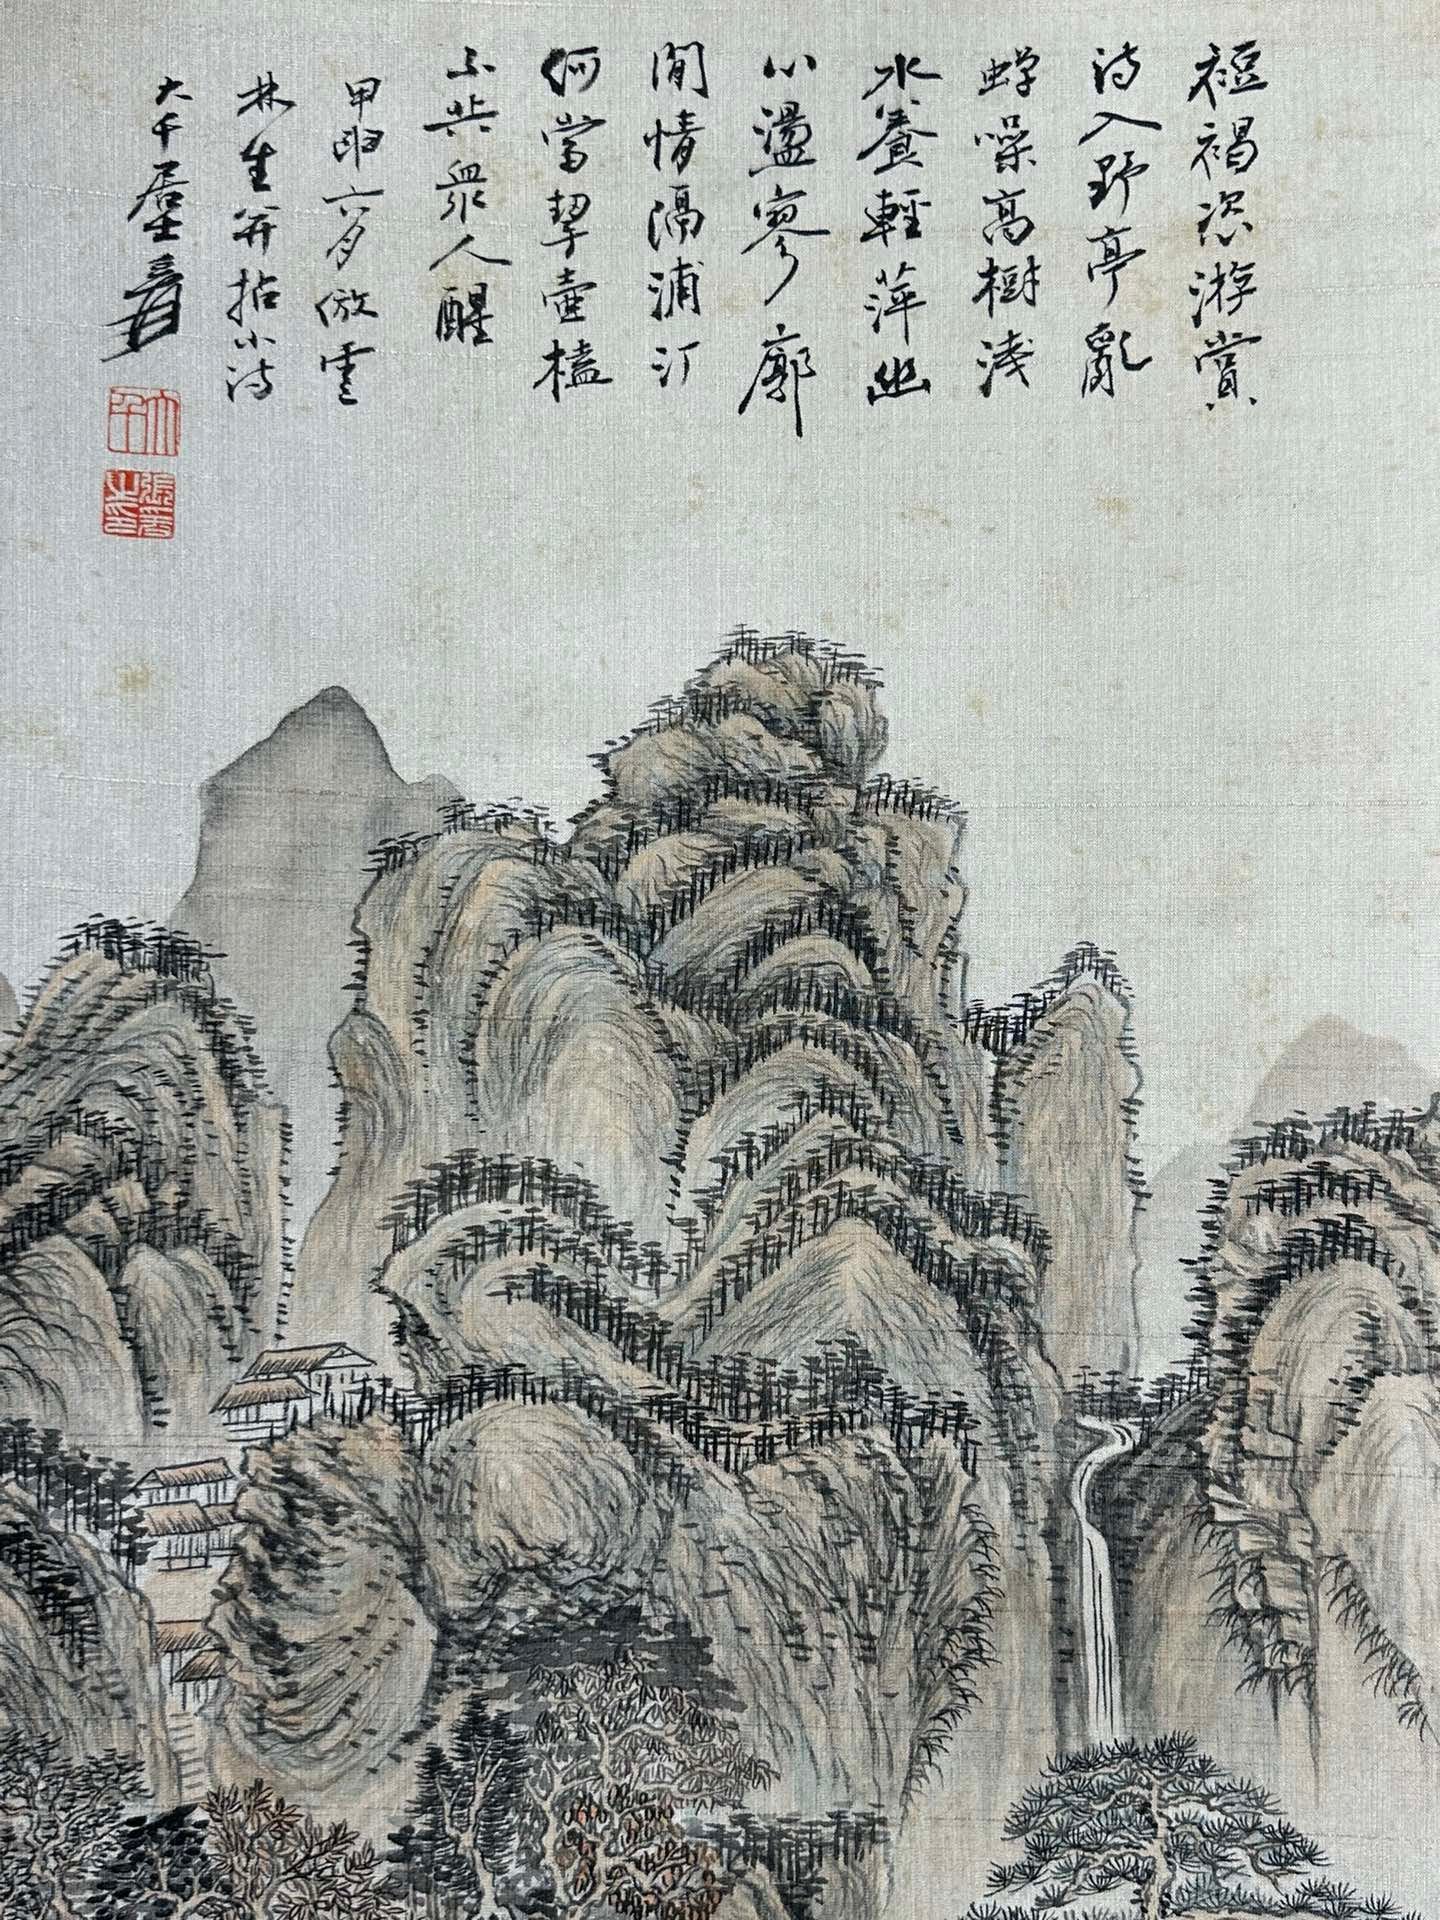 裋褐恣游賞
詩入野亭亂
蟬噪高樹淺
水養輕萍幽
心盪寥廓
閒情隔浦汀
何當挈壺榼
不共眾人醒
甲申六月倣雲
林生並拈小詩
大千居士爰
大千
張爰之印